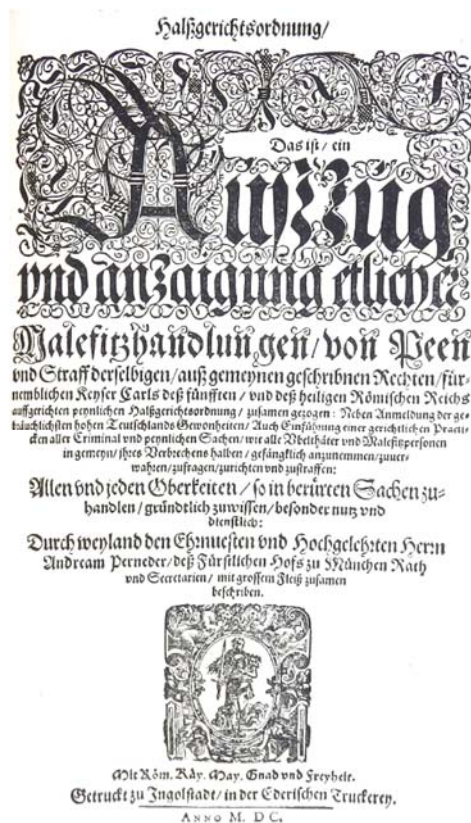 Halßgerichtsordnung/
Das ist/ ein
Außzug
vnd anzaigung etlicher
Malefitzhandlungen/ von Peen
vnd Straff derselbigen/ auß gemeynen geschribnen Rechten/ für-
nemblichen Keyser Carls deß fünfften/ vnd deß heiligen Römischen Reichs
auffgerichten peynlichen Halßgerichtsordnung/ zusamen gezogen: Neben Anmeldung der ge-
bräuchlichsten hohen Teutschlands Gewonheiten/ Auch Einführung einer gerichtlichen Practi-
cken aller Criminal vnd peynlichen Sachen/ wie alle Vbelthäter vnd Malefitzpersonen
in gemeyn/ jhres Verbrechens halben/ gefängklich anzunemmen/ zuuer-
wahren/ zufragen/ zurichten vnd zustraffen:
Allen vnd jeden Oberkeiten/ so in berürten Sachen zu-
handlen/ gründtlich zuwissen/ besonder nutz vnd
dienstlich:
Durch weyland den Ehrnuesten vnd Hochgelehrten Herrn
Andream Perneder/ deß Fürstlichen Hofs zu München Rath
vnd Secretarien/ mit grossem Fleiß zusamen
beschriben.
Mit Röm. Käy. May. Gnad vnd Freyheit.
Getruckt zu Ingolstadt/ in der Ederischen Truckerey.
ANNO M. DC.